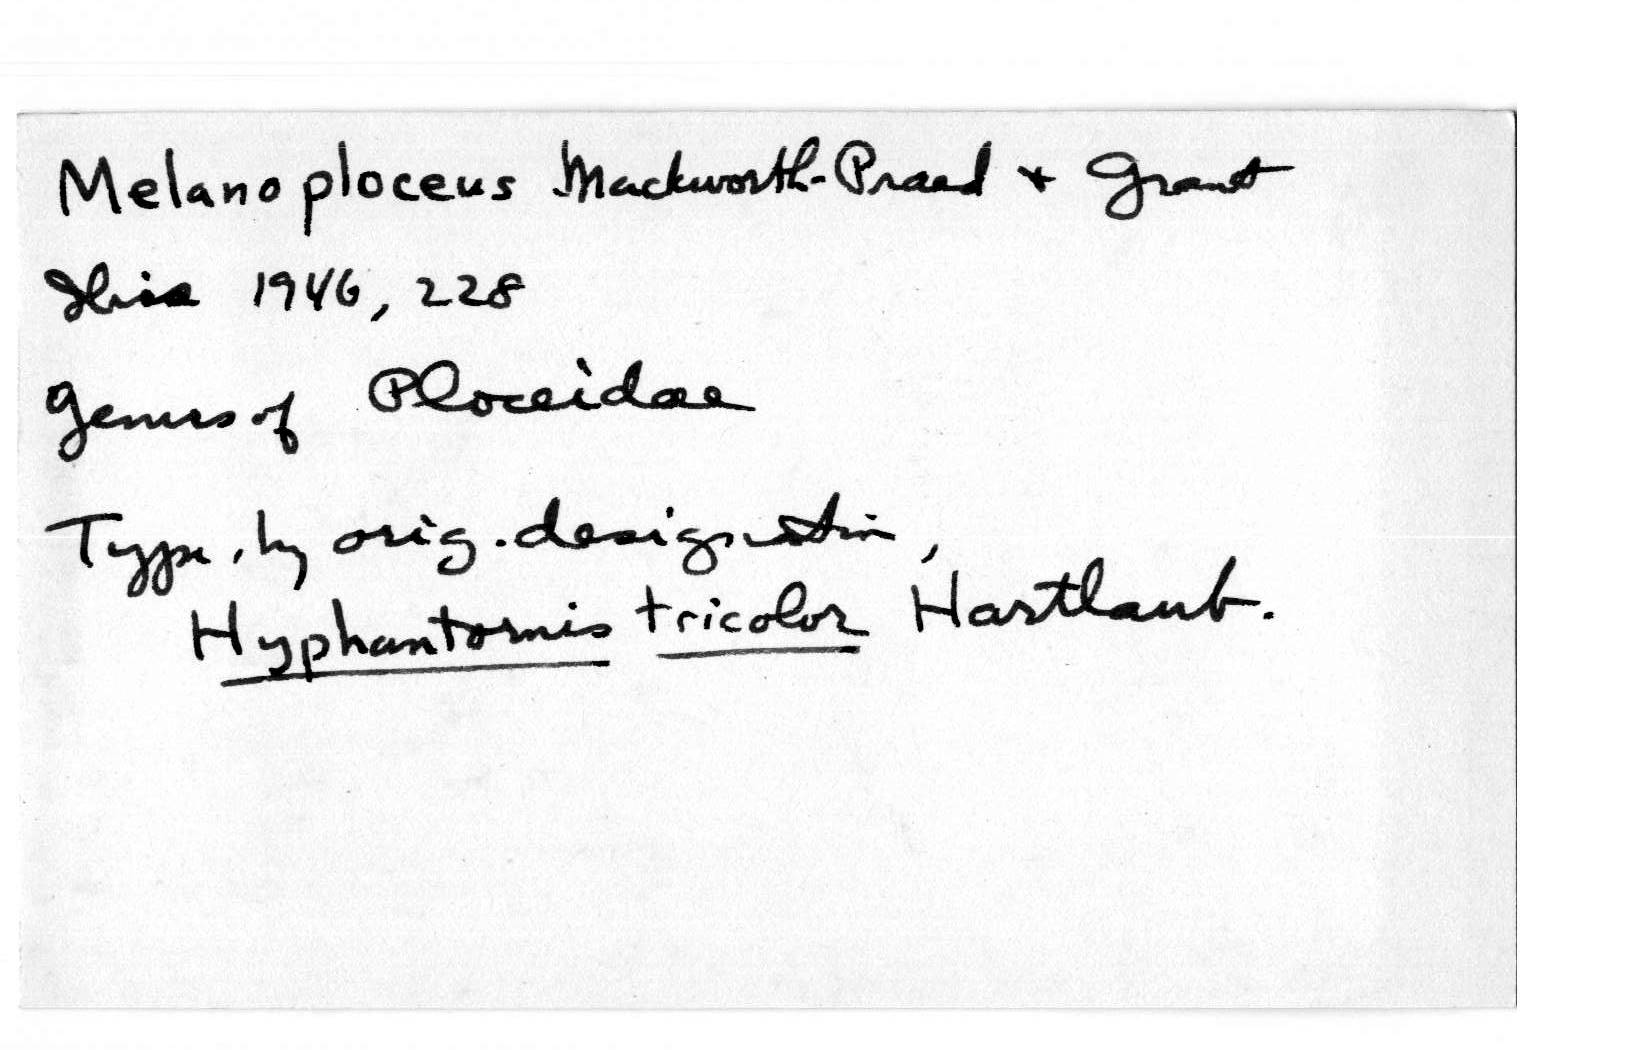 Melanoploceus Mackworth-Praed + Grant
Ibis 1946, 228
Genus of Ploceidae
Type, by orig. designation,
Hyphantornis tricolor Hartlaub.